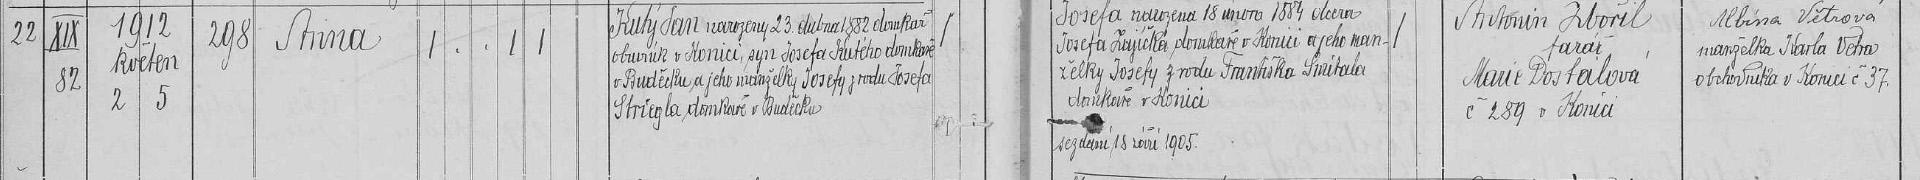 22
XIX
82
1912
květen
2 5
298
Anna
1 . . 1 1
Kutý Jan narozený 23. dubna 1882 domkář
obuvník v Konici, syn Josefa Kutého domkaře
v Buděčku, a jeho manželky Josefy z rodu Josefa
Střiegla, domkaře v Buděčku
1
Josefa narozena 18 února 1884 dcera
Josefa Zajíčka, domkaře v Konici a jeho man-
želky Josefy z rodu Františka Smékala
domkaře v Konici
sezdáni 18 září 1905.
1
Antonín Zbořil
farář,
Marie Dostálová
č 289 v Konici
Albína Vétrová
manželka Karla Vétra
obchodníka v Konici č 37.